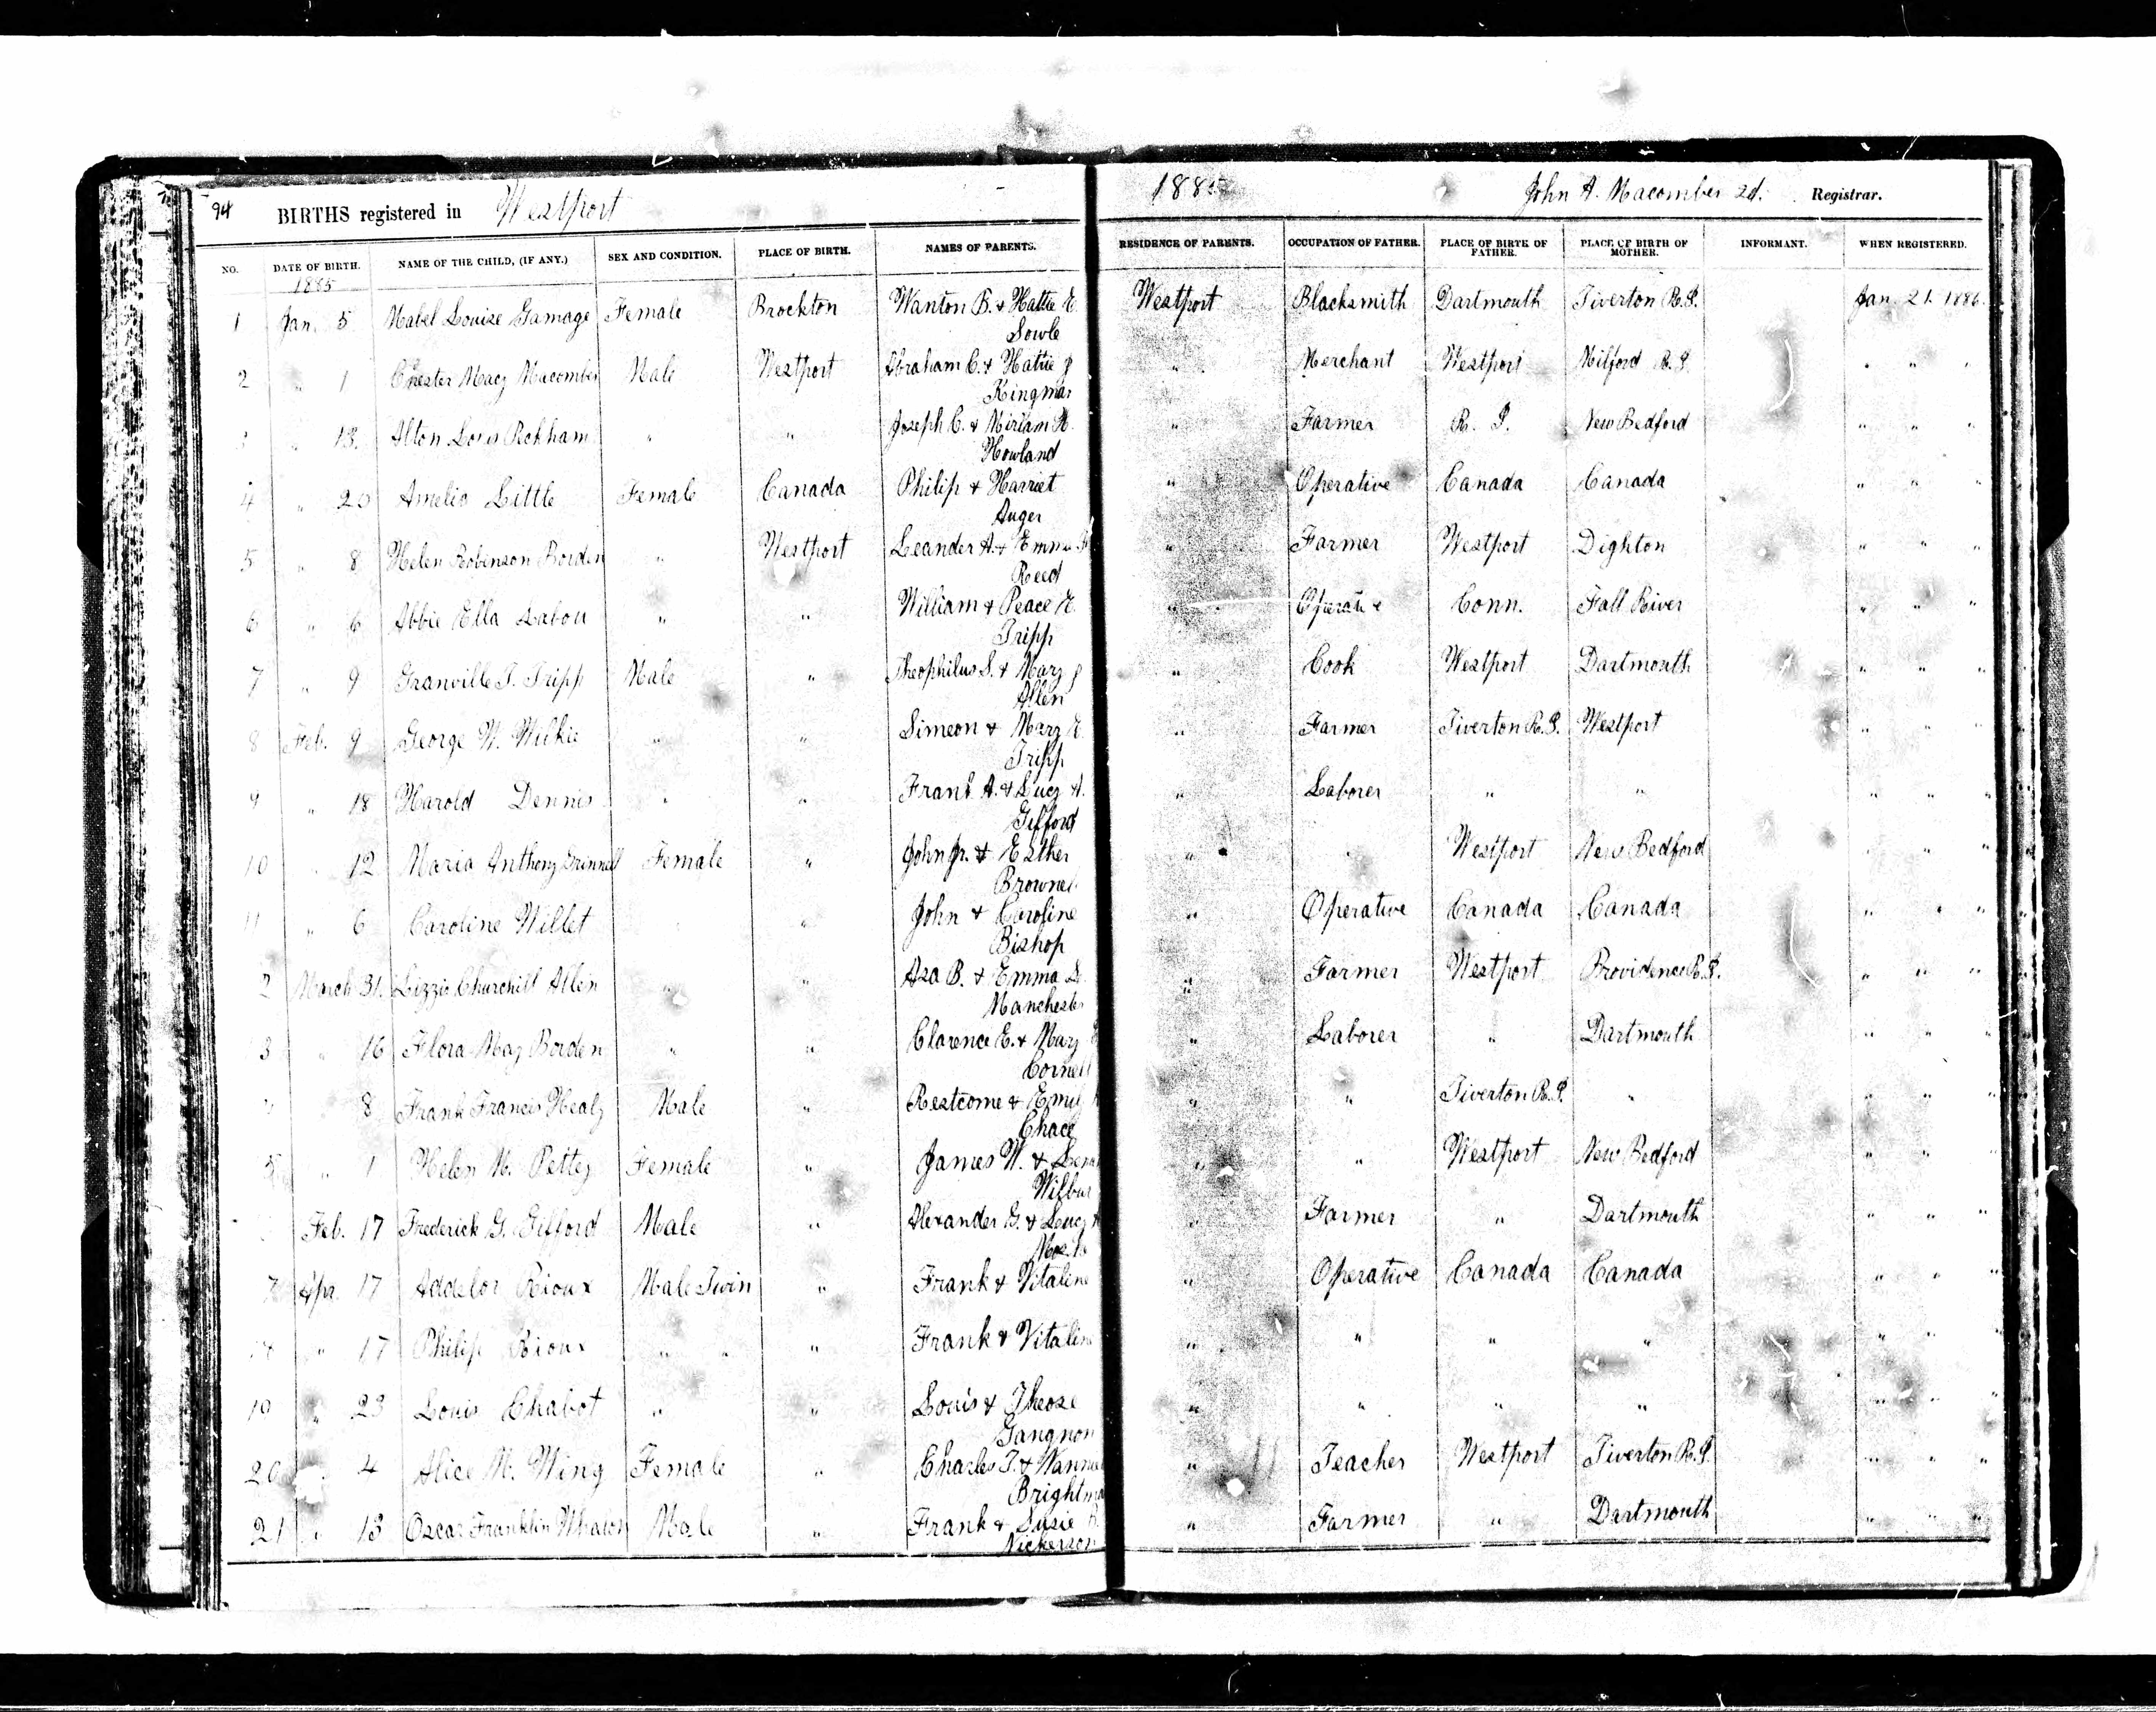 94 BIRTHS registered in Westport 1885 John A. Macomber 2d. Registrar.
NO. DATE OF BIRTH. NAME OF THE CHILD, (IF ANY.) SEX AND CONDITION. PLACE OF BIRTH. NAMES OF PARENTS. RESIDENCE OF PARENTS. OCCUPATION OF FATHER. PLACE OF BIRTH OF FATHER. PLACE OF BIRTH OF MOTHER. INFORMANT. WHEN REGISTERED.
1885
1 Jan. 5 Mabel Louise Gamage Female Brockton Wanton B. & Hattie E. Westport Blacksmith Dartmouth Tiverton R.I. Jan. 21. 1886.
Sowle
2 " 1 Chester Macy Macomber Male Westport Abraham C. & Hattie J Kingman " Merchant Westport Milford R.I. " " "
3 " 13. Alton Pckham " " Joseph C. & Miriam H. " Farmer R. I. New Bedford " " "
Howland
4 " Amelia Little Female Canada Philip & Harriet " Operative Canada Canada " " "
Auger
5 " 8 Helen Robinson Borden " Westport Leander A. & Emma " Farmer Westport Dighton " " "
Reed
6 " 6 Abbie Ella " " William & Peace E. " Operative Conn. Fall River " " "
Tripp
7 " 9 Granville T. Tripp Male " Theophilus S. & Mary J " Cook Westport Dartmouth " " "
Allen
8 Feb. 9 George W. " " Simeon & Mary E. " Farmer Tiverton R.I. Westport " " "
Tripp
9 " 18 Harold Dennis " " Frank A. & Lucy A. " Laborer " " " " "
Gifford
10 " 12 Maria Anthony Grinnell Female " John Jr. & Esther " " Westport New Bedford " " "
Brownel
11 " 6 Caroline Willet " " John & Caroline " Operative Canada Canada " " "
Bishop
2 March 31. Lizzie Churchill Allen " " Asa B. & Emma " Farmer Westport Providence R.I. " " "
Manchester
3 " 16 Flora May Borden " " Clarence E. & Mary " Laborer " Dartmouth " " "
Cornell
8 Frank Francis Healy Male " Restcome & Emily " " Tiverton R.I. " " " "
Chace
5 " 1 Helen M. Pettey Female " James W. & " " Westport New Bedford " " "
Wilbur
Feb. 17 Frederick G. Gifford Male " Alexander G. & Lucy " Farmer " Dartmouth " " "
7 Apr. 17 Addelor Rioux Male Twin " Frank & Vitaline " Operative Canada Canada " " "
18 " 17 Philip Rioux " " " Frank & Vitalin " " " " " " "
19 " 23 Louis Chabot " " Louis & " " " " " " "
Gangnon
20 " 4 Alice M. Wing Female " Charles T. & " Teacher Westport Tiverton R.I. " " "
Brightma
21 " 13 Oscar Franklin Male " Frank & Susie " Farmer " Dartmouth " " "
Nickerson